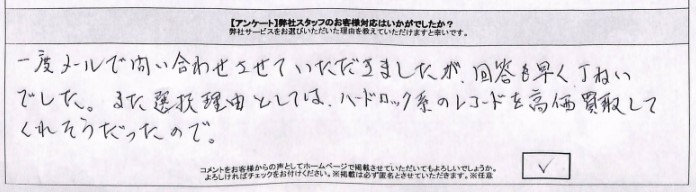 【アンケート】弊社スタッフのお客様対応はいかがでしたか？
弊社サービスをお選びいただいた理由を教えていただけますと幸いです。
一度メールで問い合わせさせていただきましたが、回答も早く丁ねい
でした。また選択理由としては、ハードロック系のレコードを高価買取して
くれそうだったので。
コメントをお客様からの声としてホームページで掲載させていただいてもよろしいでしょうか。
よろしければチェックをお付けください。※掲載は必ず匿名とさせていただきます。※任意